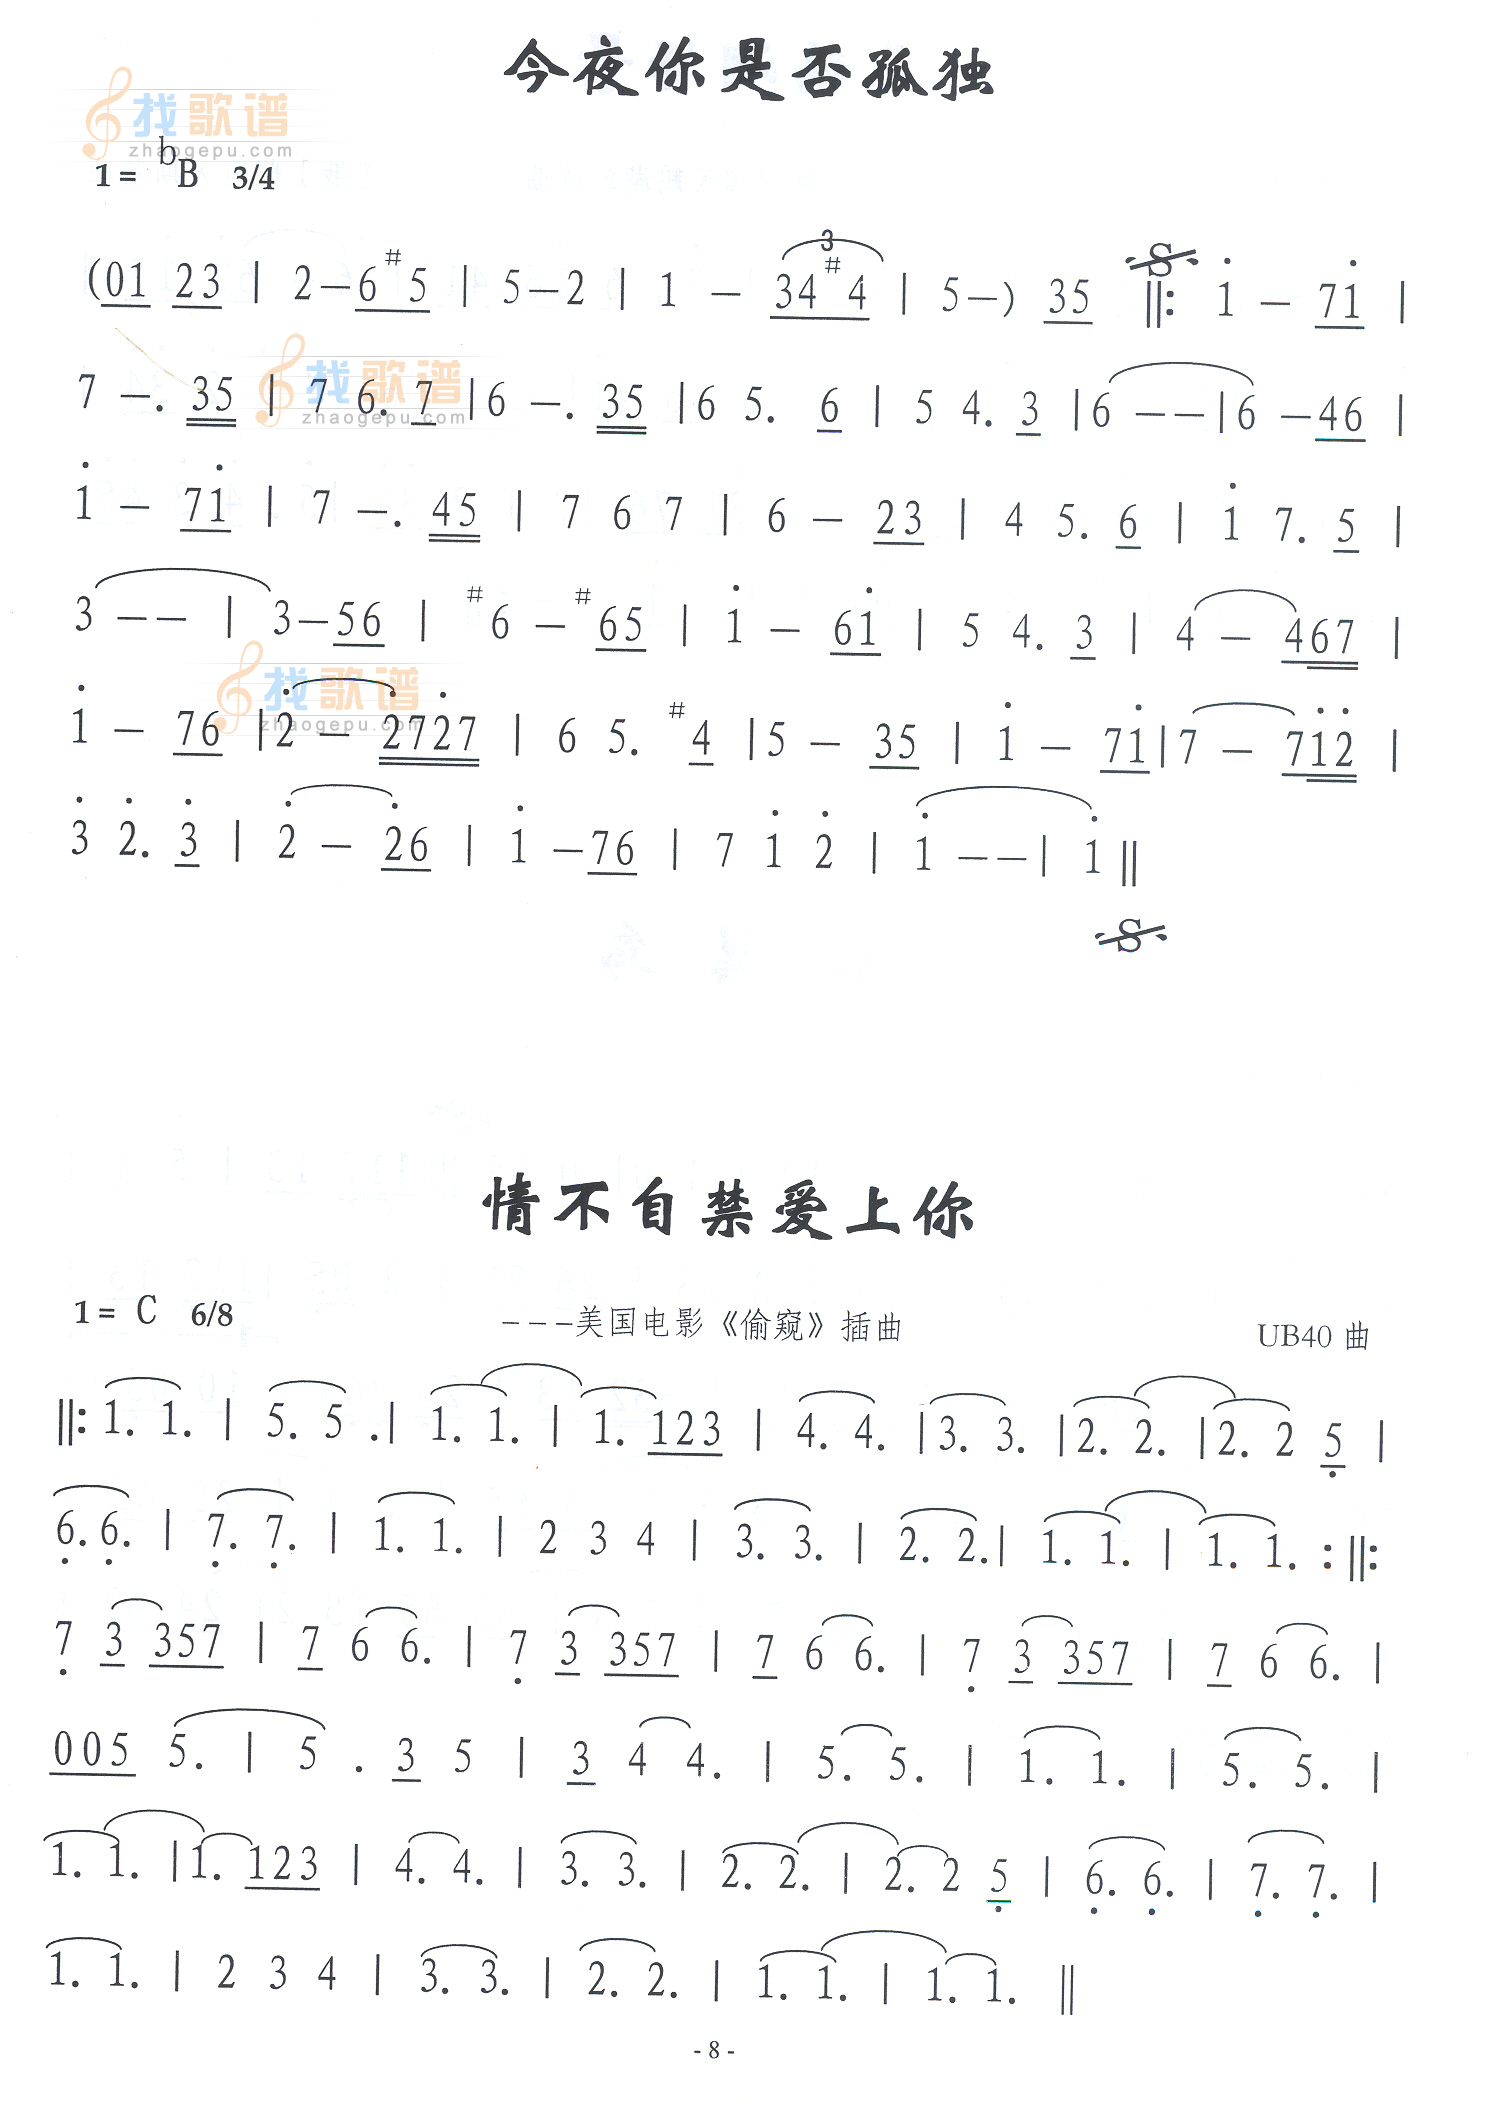 今夜你是否孤独
找歌谱
zhaogepu.com
1= bB 3/4
(01 23 | 2–6 #5 | 5–2 | 1 – 3 34 #4 | 5–) 35 𝄋 ‖: 1̇ – 71̇ |
7 –. 35 | 7 6. 7 | 6 –. 35 | 6 5. 6 | 5 4. 3 | 6 – – | 6 – 46 |
找歌谱
zhaogepu.com
1̇ – 71̇ | 7 –. 45 | 7 6 7 | 6 – 23 | 4 5. 6 | 1̇ 7. 5 |
3 – – | 3–56 | #6 – #65 | 1̇ – 61̇ | 5 4. 3 | 4 – 467 |
找歌谱
zhaogepu.com
1̇ – 76 | 2̇ – 2̇72̇7 | 6 5. #4 | 5 – 35 | 1̇ – 71̇ | 7 – 71̇2̇ |
3̇ 2̇. 3̇ | 2̇ – 2̇6 | 1̇ –76 | 7 1̇ 2̇ | 1̇ – – | 1̇ ‖
𝄋
情不自禁爱上你
1= C 6/8 ---美国电影《偷窥》插曲 UB40 曲
‖: 1. 1. | 5. 5 . | 1. 1. | 1. 123 | 4. 4. | 3. 3. | 2. 2. | 2. 2 5̣ |
6̣. 6̣. | 7̣. 7̣. | 1. 1. | 2 3 4 | 3. 3. | 2. 2. | 1. 1. | 1. 1. :‖:
7̣ 3 357 | 7 6 6. | 7̣ 3 357 | 7 6 6. | 7̣ 3 357 | 7 6 6. |
005 5. | 5 . 3 5 | 3 4 4. | 5. 5. | 1. 1. | 5. 5. |
1. 1. | 1. 123 | 4. 4. | 3. 3. | 2. 2. | 2. 2 5̣ | 6̣. 6̣. | 7̣. 7̣. |
1. 1. | 2 3 4 | 3. 3. | 2. 2. | 1. 1. | 1. 1. ‖
- 8 -